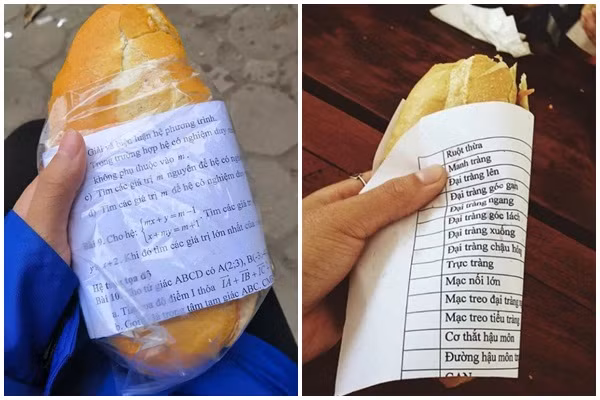 Giải và biện luận hệ phương trình.
Trong trường hợp hệ có nghiệm duy
không phụ thuộc vào m.
c) Tìm các giá trị m nguyên để hệ có
d) Tìm các giá trị m để hệ có nghiệm duy
Bài 9. Cho hệ: { mx + y = m − 1
x + my = m + 1 . Tìm các giá
= 2. Khi đó tìm các giá trị lớn nhất của
Hệ tọa độ
Bài 10. tứ giác ABCD có A(2;3), B(
a. tọa độ điểm I thỏa IA + IB + IC
b. trong tâm tam giác ABC,
Ruột thừa
Manh tràng
Đại tràng lên
Đại tràng góc gan
Đại tràng ngang
Đại tràng góc lách
Đại tràng xuống
Đại tràng chậu hông
Trực tràng
Mạc nối lớn
Mạc treo đại tràng
Mạc treo tiểu tràng
Cơ thắt hậu môn
Đường hậu môn
GAN